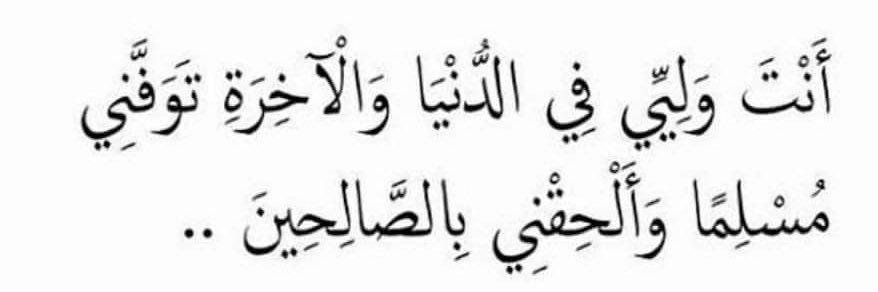 أَنْتَ وَلِيِّي فِي الدُّنْيَا وَالْآخِرَةِ تَوَفَّنِي
مُسْلِمًا وَأَلْحِقْنِي بِالصَّالِحِينَ ..